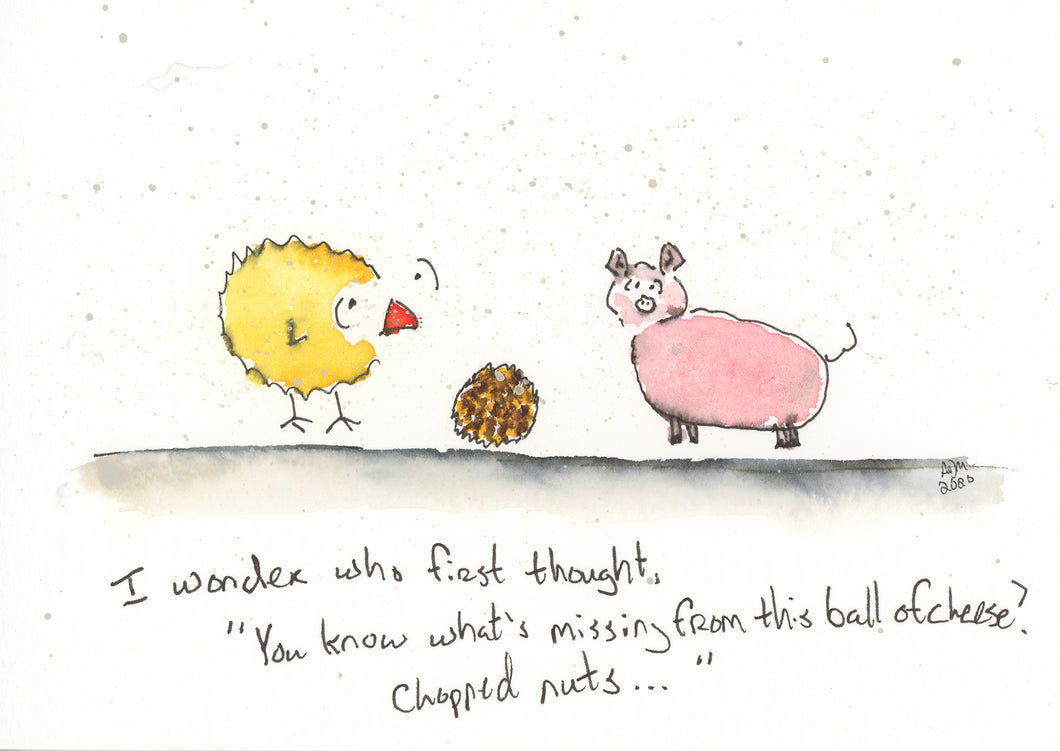 2020
I wonder who first thought,
"You know what's missing from this ball of cheese?
Chopped nuts..."